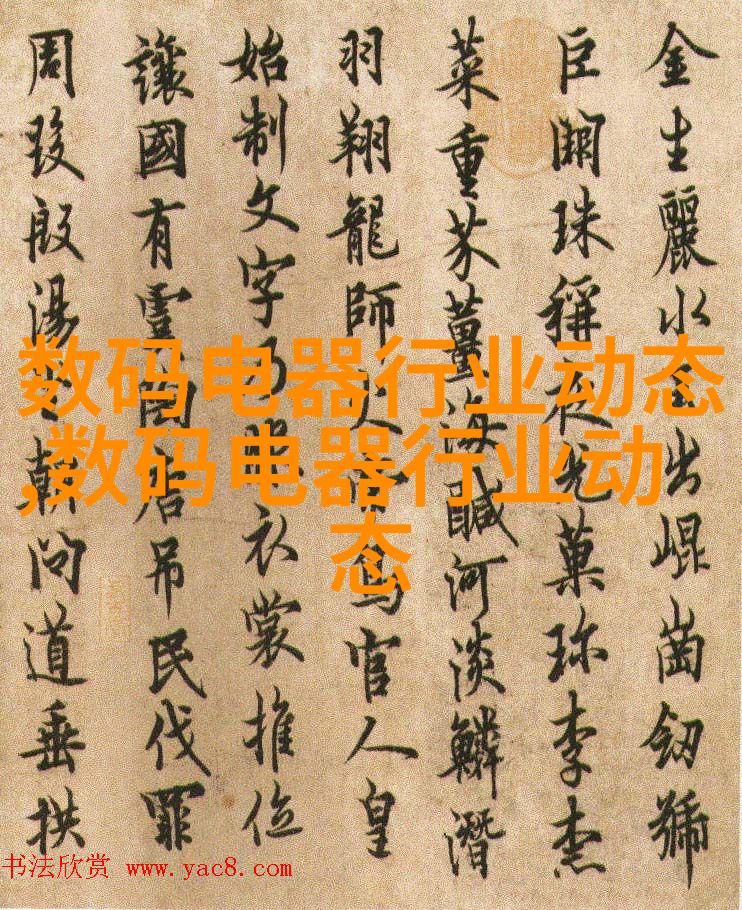 金生麗水玉出崐崗劒號
巨闕珠稱夜光菓珎李柰
菜重芥薑海醎河淡鱗潛
羽翔龍師火帝鳥官人皇
始制文字乃服衣裳推位
讓國有虞陶唐吊民伐罪
周發殷湯坐朝問道垂拱
数码电器行业动态
,数码电器行业动
态
书法欣赏 www.yac8.com